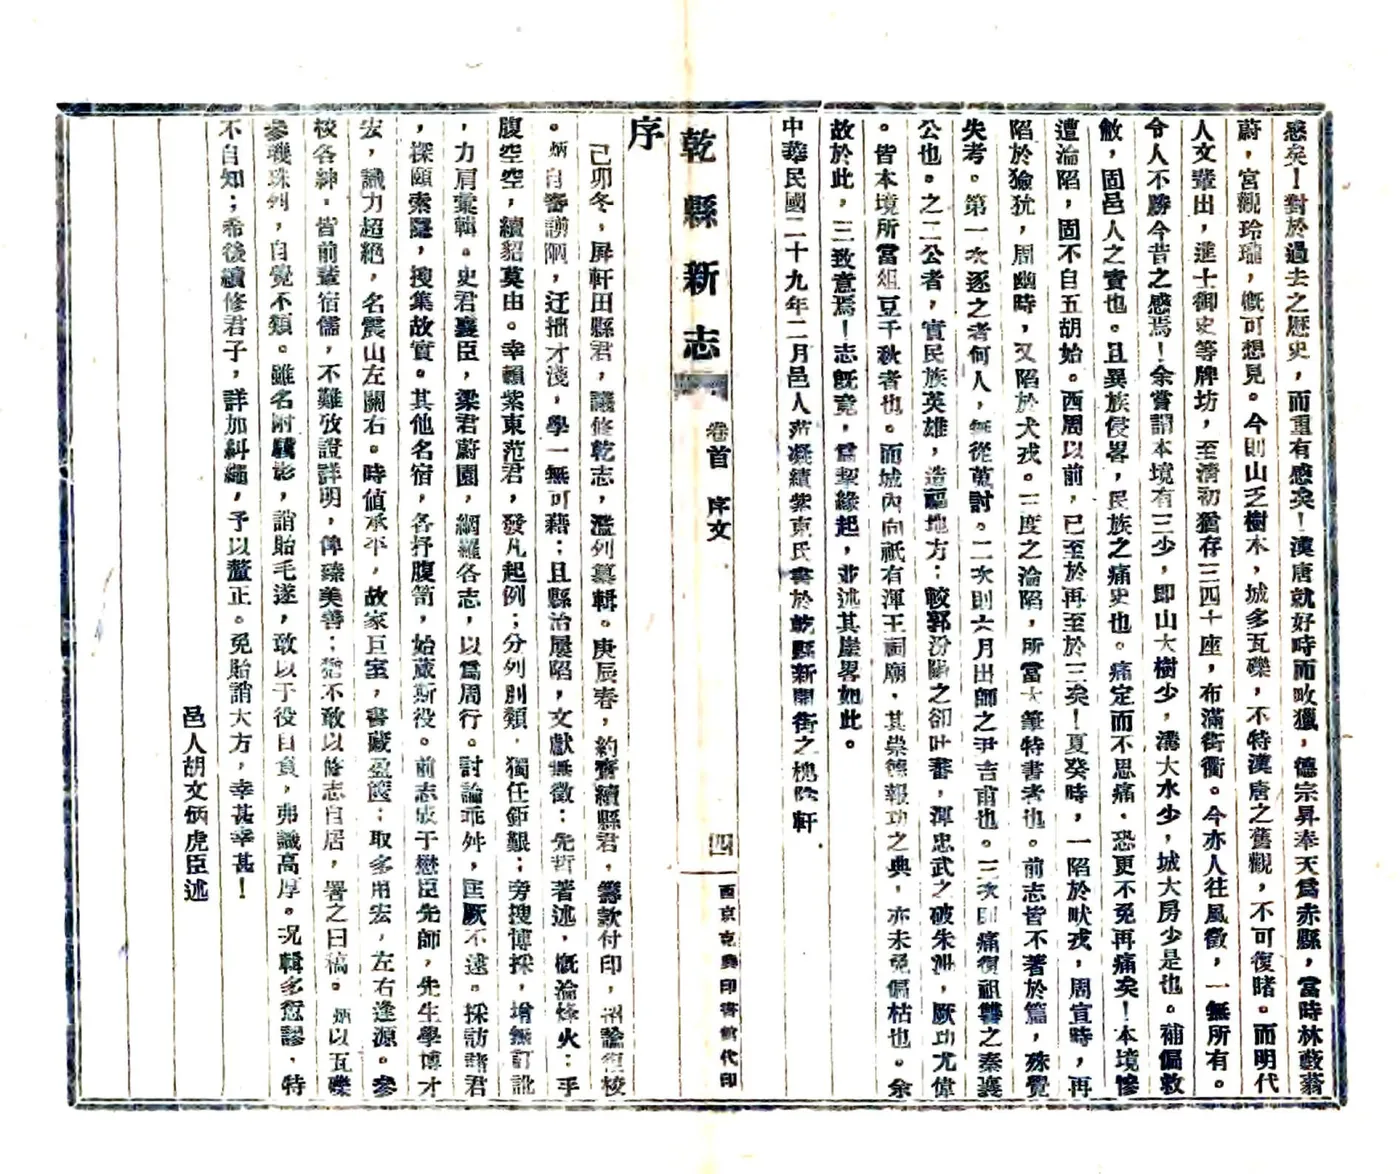 感矣！對於過去之歷史，而重有感矣！漢唐就好時而畋獵，德宗昇奉天爲赤縣，當時林薮蓊
蔚，宮觀玲瓏，概可想見。今則山乏樹木，城多瓦礫，不特漢唐之舊觀，不可復睹。而明代
人文輩出，進士御史等牌坊，至清初猶存三四十座，布滿街衢。今亦人往風徵，一無所有。
令人不勝今昔之感焉！余嘗謂本境有三少，即山大樹少，溝大水少，城大房少是也。補偏救
敝，固邑人之責也。且異族侵畧，民族之痛史也。痛定而不思痛，恐更不免再痛矣！本境慘
遭淪陷，固不自五胡始。西周以前，已至於再至於三矣！夏癸時，一陷於畎戎，周宣時，再
陷於獫狁，周幽時，又陷於犬戎。三度之淪陷，所當大筆特書者也。前志皆不著於篇，殊覺
失考。第一次逐之者何人，無從蒐討。二次則六月出師之尹吉甫也。三次則痛復祖讐之秦襄
公也。之二公者，實民族英雄，造福地方；較郭汾陽之卻吐蕃，渾忠武之破朱泚，厥功尤偉
。皆本境所當俎豆千秋者也。而城內向祇有渾王祠廟，其崇德報功之典，亦未免偏枯也。余
故於此，三致意焉！志旣竟，爲挈緣起，並述其崖畧如此。
中華民國二十九年二月邑人范凝績紫東氏書於乾縣新開街之槐陰軒
乾縣新志
卷首 序文
四
西京克興印書館代印
序
己卯冬，屏軒田縣君，議修乾志，濫列纂輯。庚辰春，約齋續縣君，籌款付印，招論復校
。炳自審謭陋，迂拙才淺，學一無可藉；且縣治屢陷，文獻無徵；先哲著述，概淪烽火；手
腹空空，續貂莫由。幸賴紫東范君，發凡起例；分列別類，獨任鉅艱；旁搜博採，增無訂訛
，力肩彙輯。史君襄臣，梁君蔚園，網羅各志，以爲周行。討論乖舛，匡厥不逮。採訪諸君
，探頤索隱，搜集故實。其他名宿，各抒腹笥，始蕆斯役。前志成于懋臣先師，先生學博才
宏，識力超絕，名震山左關右。時値承平，故家巨室，書藏盈篋；取多用宏，左右逢源。參
校各紳，皆前輩宿儒，不難攷證詳明，俾臻美善；猶不敢以修志自居，署之曰稿。炳以瓦礫
參璣珠列，自覺不類。雖名附驥影，誚貽毛遂，敢以于役自負，弗識高厚。况輯多愆謬，特
不自知；希後續修君子，詳加糾繩，予以釐正。免貽誚大方，幸甚幸甚！
邑人胡文炳虎臣述